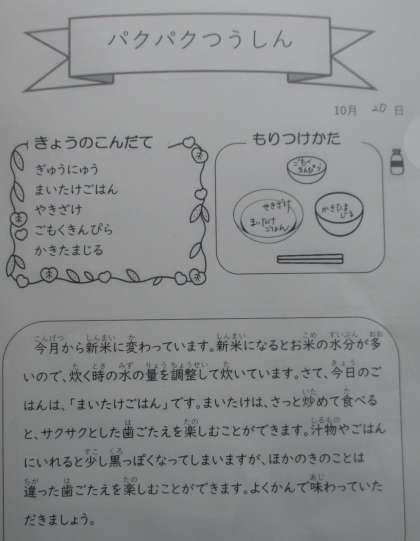 パクパクつうしん
10月 20 日
きょうのこんだて
ぎゅうにゅう
まいたけごはん
やきざけ
ごもくきんぴら
かきたまじる
もりつけかた
ごもく
きんぴら
まいたけ
ごはん
今月から新米に変わっています。新米になるとお米の水分が多
いので、炊く時の水の量を調整して炊いています。さて、今日のご
はんは、「まいたけごはん」です。まいたけは、さっと炒めて食べる
と、サクサクとした歯ごたえを楽しむことができます。汁物やごはん
にいれると少し黒っぽくなってしまいますが、ほかのきのことは
違った歯ごたえを楽しむことができます。よくかんで味わっていた
だきましょう。